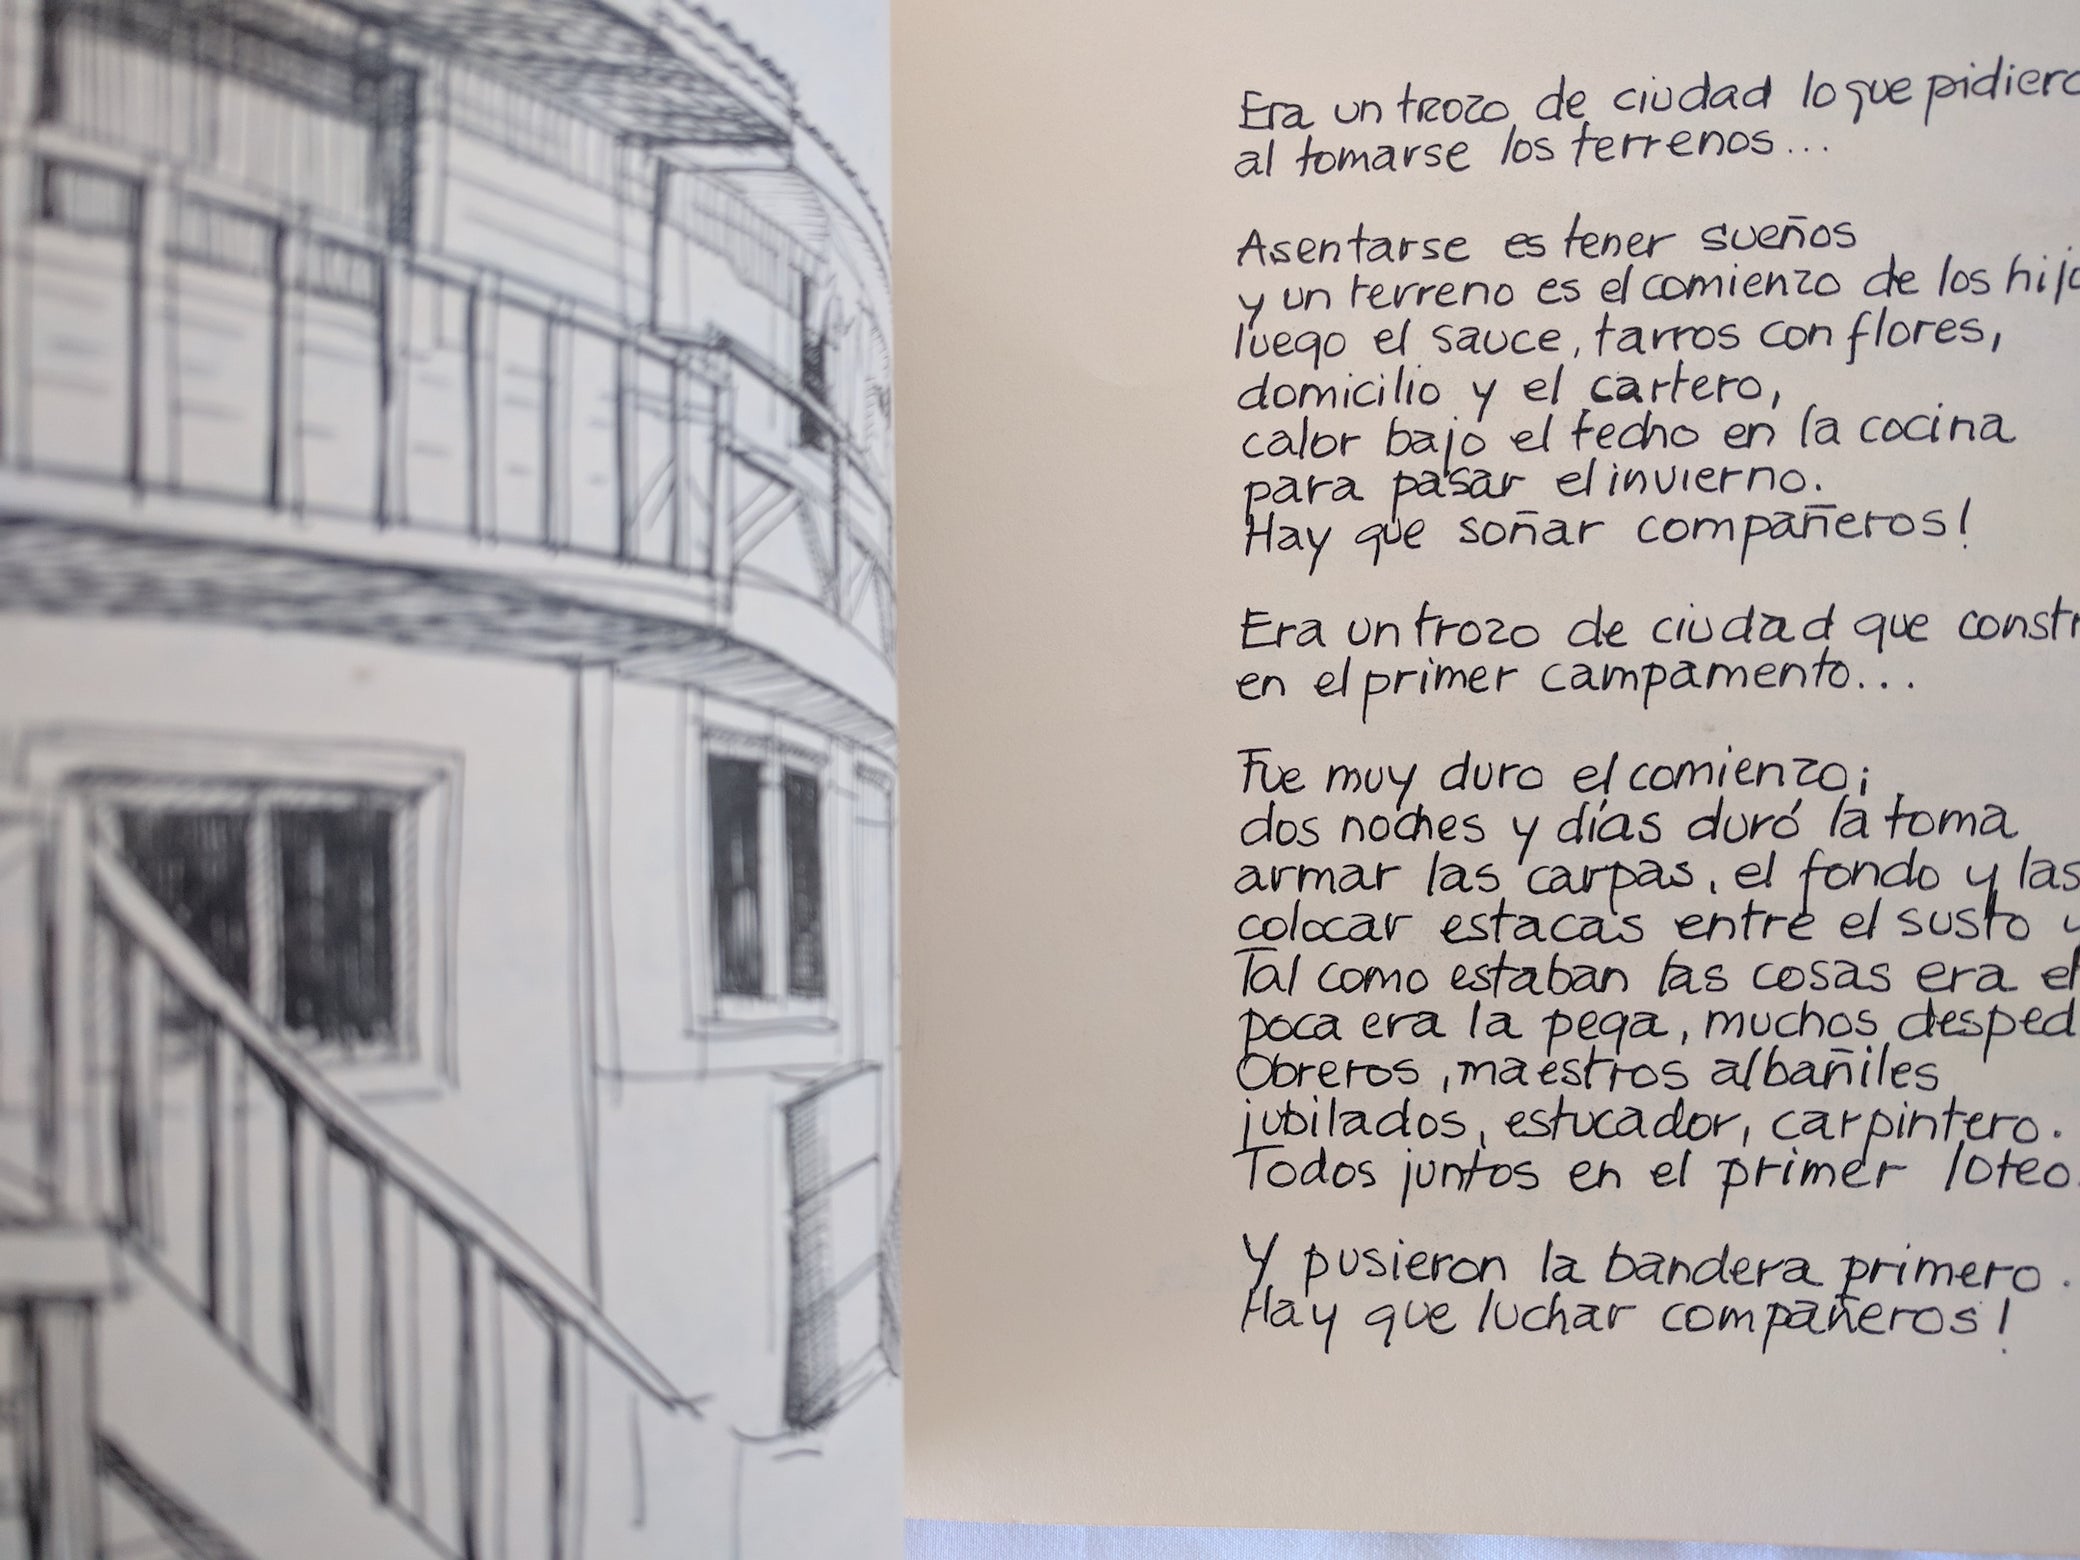 Era un trozo de ciudad lo que
al tomarse los terrenos...
Asentarse es tener sueños
y un terreno es el comienzo de los
luego el sauce, tarros con flores,
domicilio y el cartero,
calor bajo el techo en la cocina
para pasar el invierno.
Hay que soñar compañeros!
Era un trozo de ciudad que
en el primer campamento...
Fue muy duro el comienzo;
dos noches y días duró la toma
armar las carpas, el fondo y las
colocar estacas entre el susto y
Tal como estaban las cosas era el
poca era la pega, muchos
Obreros, maestros albañiles
jubilados, estucador, carpintero.
Todos juntos en el primer loteo.
Y pusieron la bandera primero.
Hay que luchar compañeros!